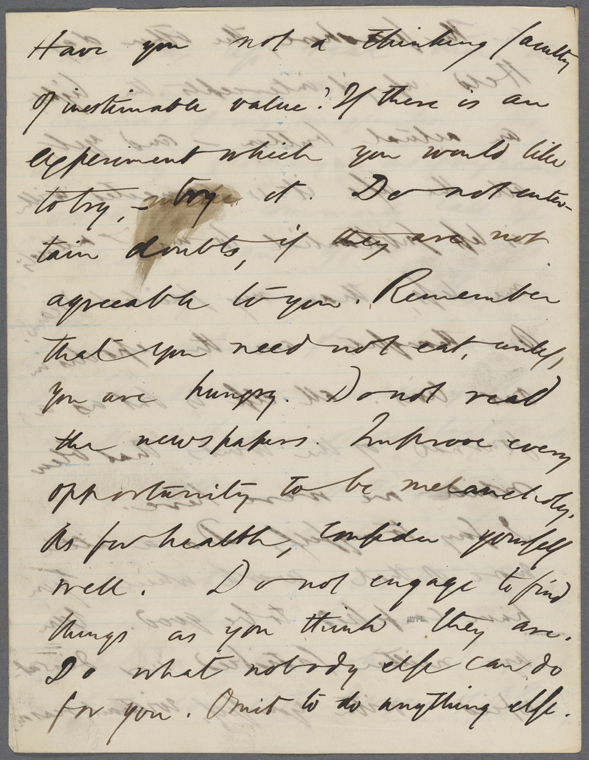 Have you not a thinking faculty
of inestimable value? If there is an
experiment which you would like
to try, try it. Do not enter-
tain doubts, if they are not
agreeable to you. Remember
that you need not eat, unless,
you are hungry. Do not read
the newspapers. Improve every
opportunity to be melancholy.
As for health, consider yourself
well. Do not engage to find
things as you think they are.
Do what nobody else can do
for you. Omit to do anything else.